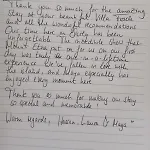 Thank you so much for the amazing
stay at your beautiful Villa
and all the wonderful recommendations
Our time here in Sicily has been
unforgettable. The incredible show that
Mount Etna put on for us on our first
day was truly a once in a lifetime
experience. We've fallen in love with
the island, and Maya especially has
enjoyed every moment here.
Thank you so much for making our stay
so special and memorable
Warm regards, Laura & Maya"